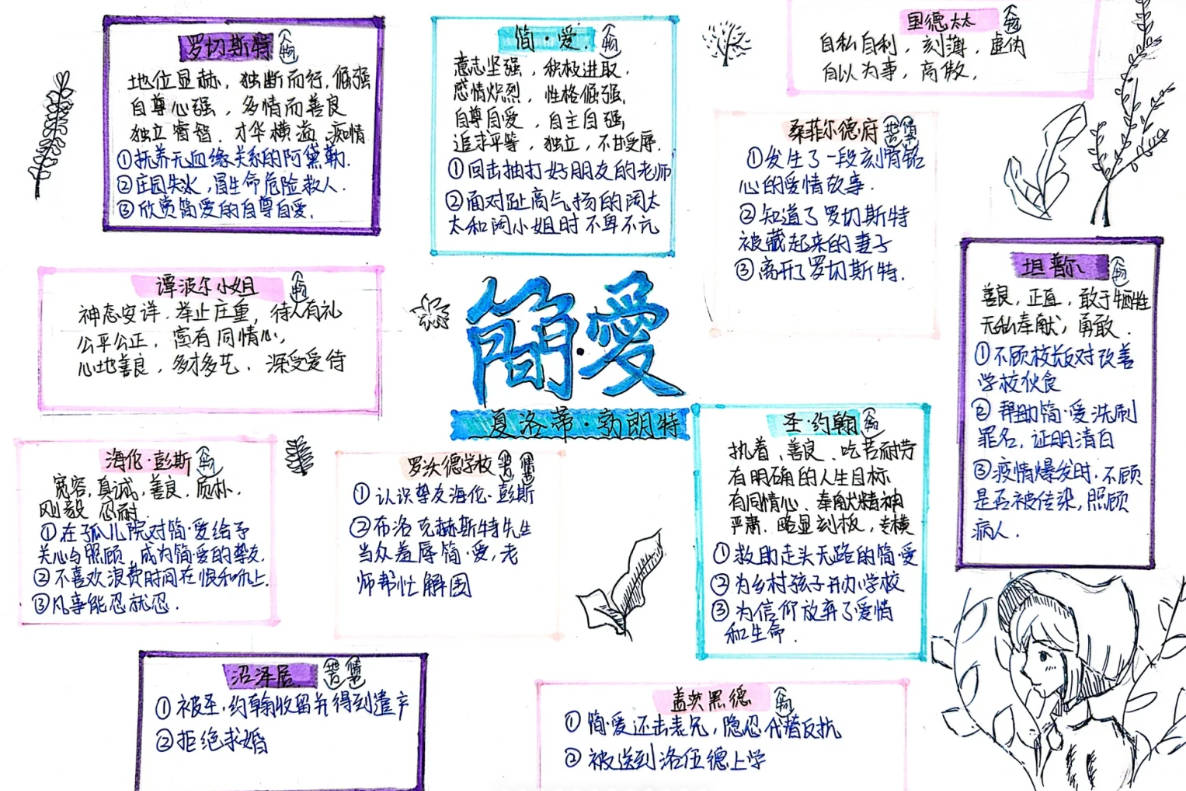 罗切斯特
地位显赫，独断而行，倔强
自尊心强，多情而善良
独立睿智．才华横溢．痴情
①抚养无血缘关系的阿黛勒．
②庄园失火，冒生命危险救人．
③欣赏简爱的自尊自爱．
简·爱
意志坚强，积极进取．
感情炽烈，性格倔强．
自尊自爱，自主自强
追求平等，独立，不甘受辱．
①回击抽打好朋友的老师
②面对趾高气扬的阿太
太和阿小姐时不卑不亢
里德太太
自私自利，刻薄，虚伪
自以为事，高傲．
桑菲尔德府
①发生了一段刻骨铭
心的爱情故事．
②知道了罗切斯特
被藏起来的妻子
③离开了罗切斯特．
谭波尔小姐
神态安详．举止庄重，待人有礼
公平公正，富有同情心，
心地善良，多才多艺．深受爱待
簡·愛
夏洛蒂·勃朗特
坦普尔
善良，正直，敢于牺牲
无私奉献，勇敢．
①不顾校长反对改善
学校伙食
②帮助简·爱洗刷
罪名．证明清白
③疫情爆发时．不顾
是否被传染，照顾
病人．
海伦·彭斯
宽容，真诚，善良，质朴，
刚毅 忍耐．
①在孤儿院对简·爱给予
关心与照顾，成为简爱的挚友．
②不喜欢浪费时间在恨和仇上．
③凡事能忍就忍．
罗沃德学校
①认识挚友海伦·彭斯
②布洛克赫斯特先生
当众羞辱简·爱，老
师帮忙解围
圣·约翰
执着，善良．吃苦耐劳
有明确的人生目标
有同情心．奉献精神
严肃．略显刻板，专横
①救助走头无路的简·爱
②为乡村孩子开办学校
③为信仰放弃了爱情
和生命．
沼泽居
①被圣·约翰收留并得到遗产
②拒绝求婚
盖茨黑德
①简·爱还击表兄，隐忍代替反抗
②被送到洛伍德上学